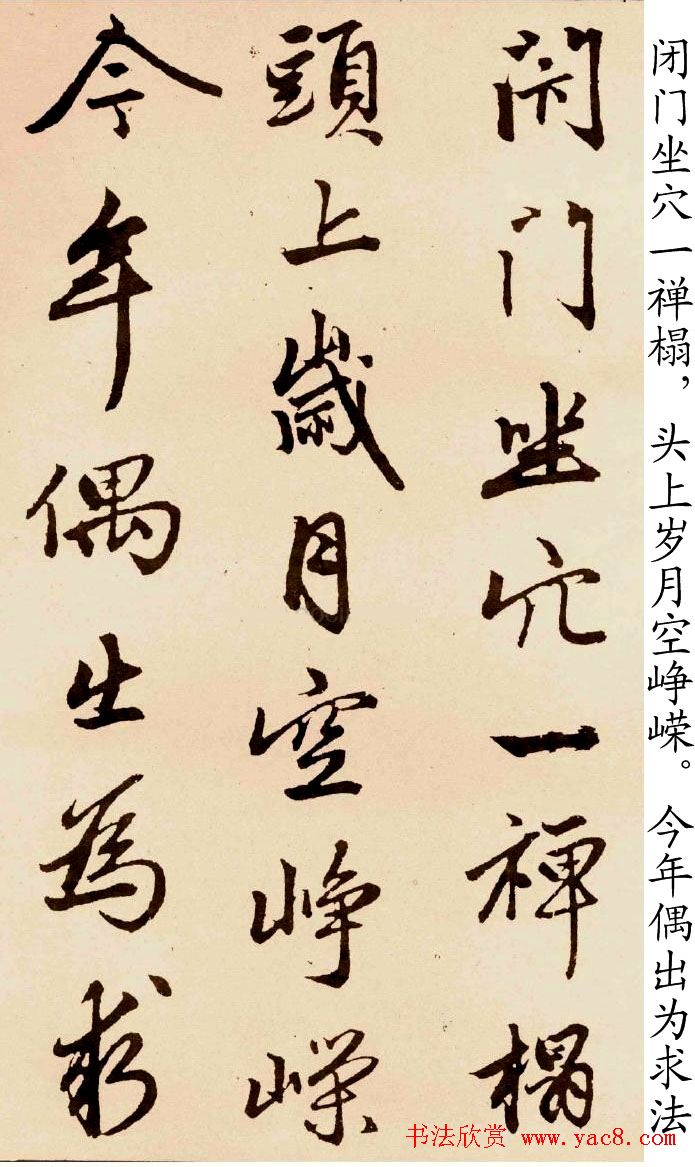 闭门坐穴一禅榻，头上岁月空峥嵘。今年偶出为求法
閇门坐穴一禅榻
頭上歲月空峥嵘
今年偶出為求
书法欣赏 www.yac8.com